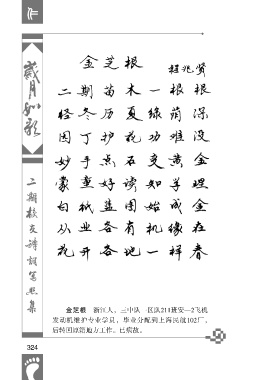 岁月如歌
二期校友诗词写照集
金芝根
二期苗木一根根
经冬历夏绿荫深
园丁护花功难没
妙手点石变黄金
蒙童好读知学理
白纸蓝图始成
从业各有机缘在
花开各地一样春
金芝根 浙江人。三中队一区队211班安—2飞机
发动机维护专业学员，毕业分配到上海民航102厂，
后转回原籍地方工作。已病故。
324